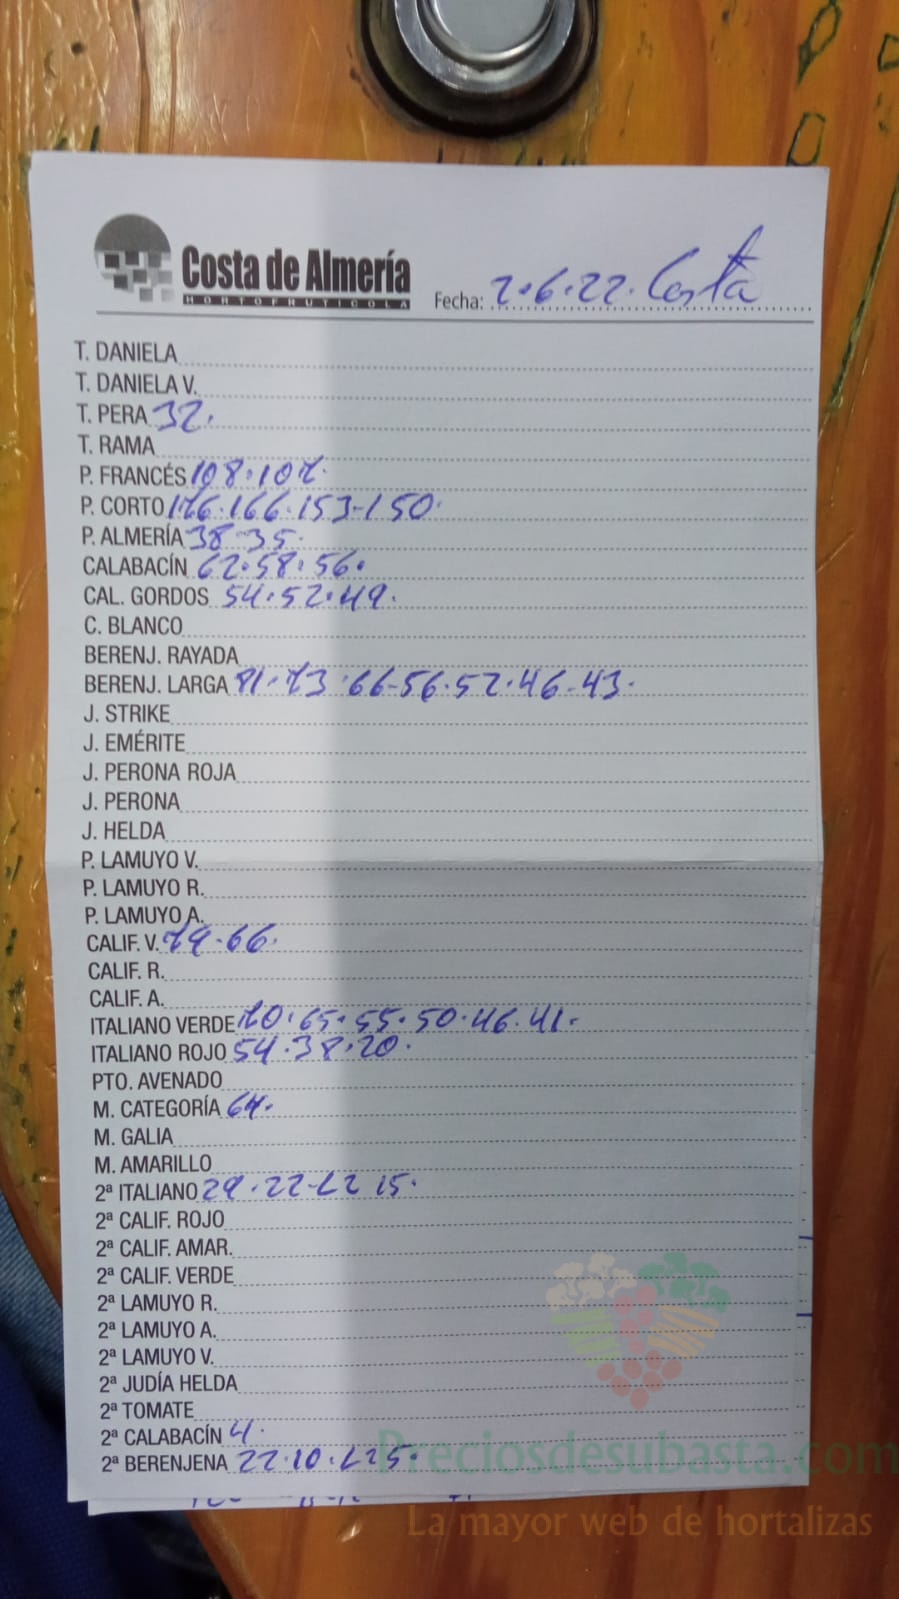 Costa de Almería
HORTOFRUTICOLA
Fecha: 2.6.22. Costa
T. DANIELA
T. DANIELA V.
T. PERA 32.
T. RAMA
P. FRANCÉS 108.107.
P. CORTO 176.166.153-150.
P. ALMERÍA 38-35.
CALABACÍN 62.58.56.
CAL. GORDOS 54.52.49.
C. BLANCO
BERENJ. RAYADA
BERENJ. LARGA 81.73.66-56.52.46-43.
J. STRIKE
J. EMÉRITE
J. PERONA ROJA
J. PERONA
J. HELDA
P. LAMUYO V.
P. LAMUYO R.
P. LAMUYO A.
CALIF. V. 79.66.
CALIF. R.
CALIF. A.
ITALIANO VERDE 70.65.55.50.46.41.
ITALIANO ROJO 54.38.20.
PTO. AVENADO
M. CATEGORÍA 64.
M. GALIA
M. AMARILLO
2ª ITALIANO 29.22- 15.
2ª CALIF. ROJO
2ª CALIF. AMAR.
2ª CALIF. VERDE
2ª LAMUYO R.
2ª LAMUYO A.
2ª LAMUYO V.
2ª JUDÍA HELDA
2ª TOMATE
2ª CALABACÍN 4.
2ª BERENJENA 22.10.
Preciosdesubasta.com
La mayor web de hortalizas